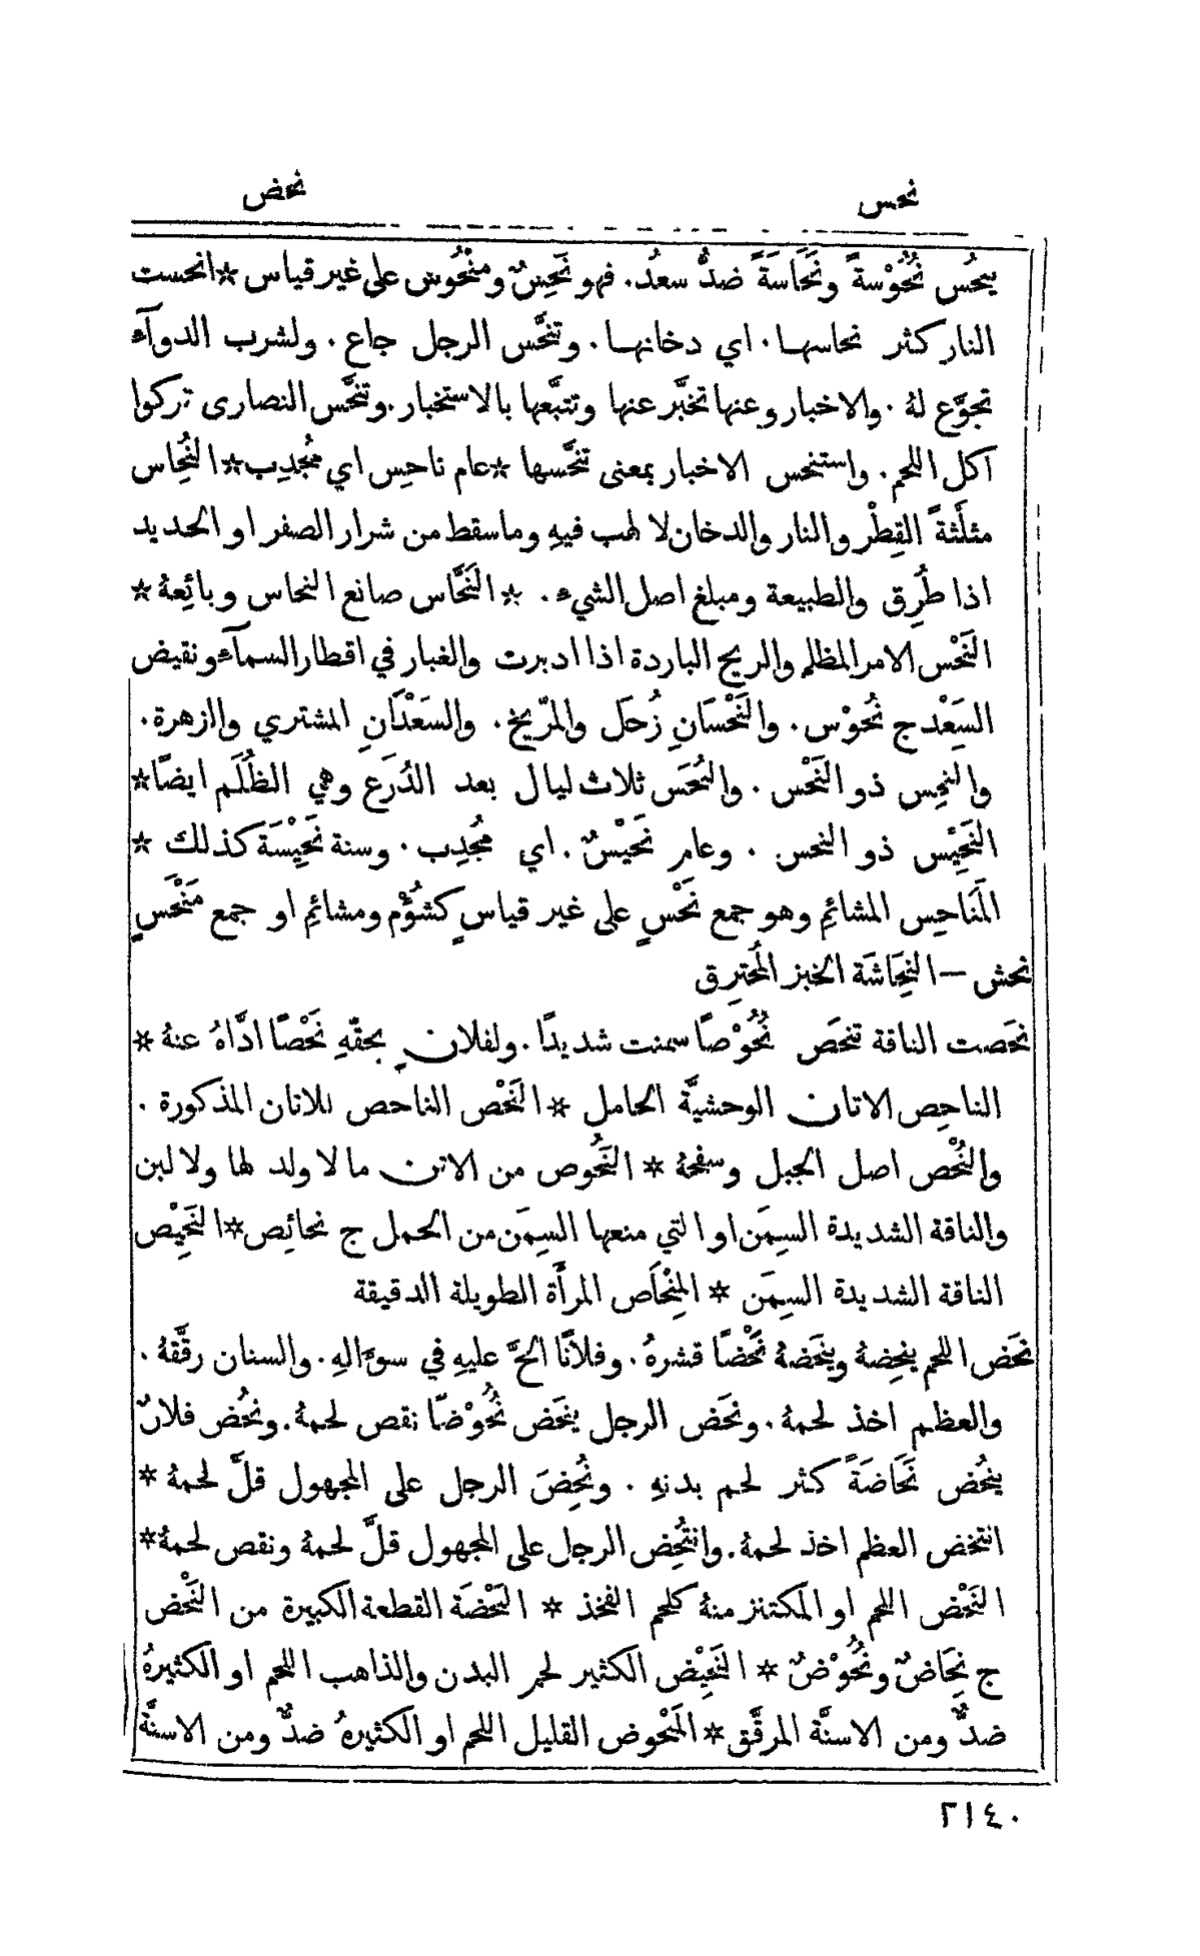 نحس
نحض
ينحُس نُحُوْسةً ونَحَاسَةً ضدُّ سعُد. فهو نَحِسٌ ومنْحُوس على غير قياس * انحست
النار كثر نحاسها. اي دخانها. وتنحَّس الرجل جاع. ولشرب الدوآء
تجوَّع لهُ. والاخبار وعنها تخبَّر عنها وتتبَّعها بالاستخبار. وتنحَّس النصارى تركوا
اكل اللحم. واستنحس الاخبار بمعنى تنحَّسها * عام ناحِس اي مُجْدِب * النُحِاس
مثلَثةً القِطْر والنار والدخان لا لهب فيهِ وما سقط من شرار الصفر او الحديد
اذا طُرِق والطبيعة ومبلغ اصل الشيء. * النَحَّاس صانع النحاس وبائِعهُ *
النَحْس الامر المظلم والريح الباردة اذا ادبرت والغبار في اقطار السمآء ونقيض
السَعْد ج نُحُوْس. والنَحْسَانِ زُحَل والمرّيخ. والسَعْدَانِ المشتري والزهرة.
والنحِس ذو النَحْس. والنُحَس ثلاث ليال بعد الدُرَع وهي الظُلَم ايضًا *
النَحِيْس ذو النحس. وعام نَحَيْسٌ. اي مُجْدِب. وسنة نَحِيْسَة كذلك *
المَنَاحِس المشائِم وهو جمع نَحْسٍ على غير قياسٍ كشُؤْم ومشائِم او جمع مَنْحَسٍ
نحش — النِحَاشَة الخبز المُحترِق
نحَصت الناقة تنحَص نُحُوْصًا سمنت شديدًا. ولفلانٍ بحقّهِ نَحْصًا ادَّاهُ عنهُ *
الناحِص الاتان الوحشيَّة الحامل * النَحْص الناحص للاتان المذكورة.
والنُحْص اصل الجبل وسفحهُ * النَحُوص من الاتن ما لا ولد لها ولا لبن
والناقة الشديدة السِمَن او التي منعها السِمَن من الحمل ج نحائِص * النَحِيْص
الناقة الشديدة السِمَن * المِنْحَاص المرأَة الطويلة الدقيقة
نحَض اللحم ينحِضهُ وينحَضهُ نَحْضًا قشرهُ. وفلانًا الحَّ عليهِ في سوءَالهِ. والسنان رقَّقهُ.
والعظم اخذ لحمهُ. ونحَض الرجل ينحَض نُحُوْضًا نقص لحمهُ. ونحُض فلانٌ
ينحُض نَحَاضَةً كثر لحم بدنهِ. ونُحِضَ الرجل على المجهول قلَّ لحمهُ *
انتحض العظم اخذ لحمهُ. وانتُحِض الرجل على المجهول قلَّ لحمهُ ونقص لحمهُ *
النَحْض اللحم او المكتنز منهُ كلحم الفخذ * النَحْضَة القطعة الكبيرة من النَحْض
ج نِحَاضٌ ونُحُوْضٌ * النَحِيْض الكثير لحم البدن والذاهب اللحم او الكثيرهُ
ضدٌّ ومن الاسنَّة المرقَّق * المَنْحُوض القليل اللحم او الكثيرهُ ضدٌّ ومن الاسنَّة
٢١٤٠